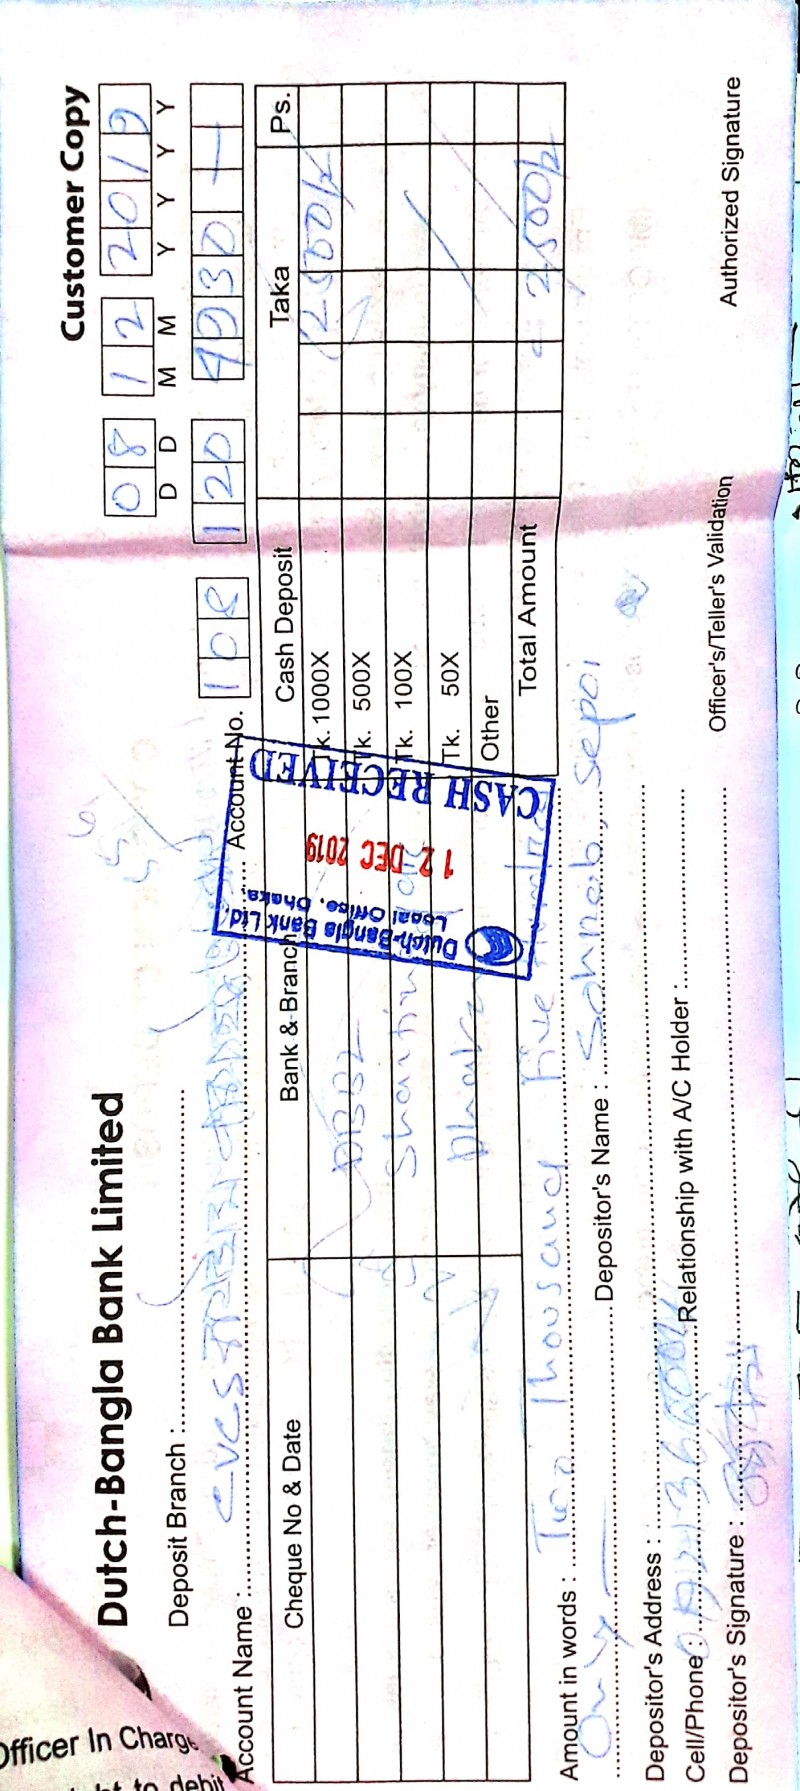 Customer Copy
Dutch-Bangla Bank Limited
08 12 2019
D D M M Y Y Y Y
Deposit Branch :
Account Name : Account No. 108 120 4930
Cheque No & Date Bank & Branch Cash Deposit Taka Ps.
DBBL Tk. 1000X 2500/-
Tk. 500X
Tk. 100X
Dhaka Tk. 50X
Other
Total Amount = 2500/-
Dutch-Bangla Bank Ltd.
Local Office, Dhaka.
12 DEC 2019
CASH RECEIVED
Amount in words : Two Thousand five hundred
Only
Depositor's Name : Sohrab, Sepoi
Depositor's Address :
Cell/Phone : Relationship with A/C Holder :
Depositor's Signature :
Officer's/Teller's Validation Authorized Signature
Officer In Charge
to debit